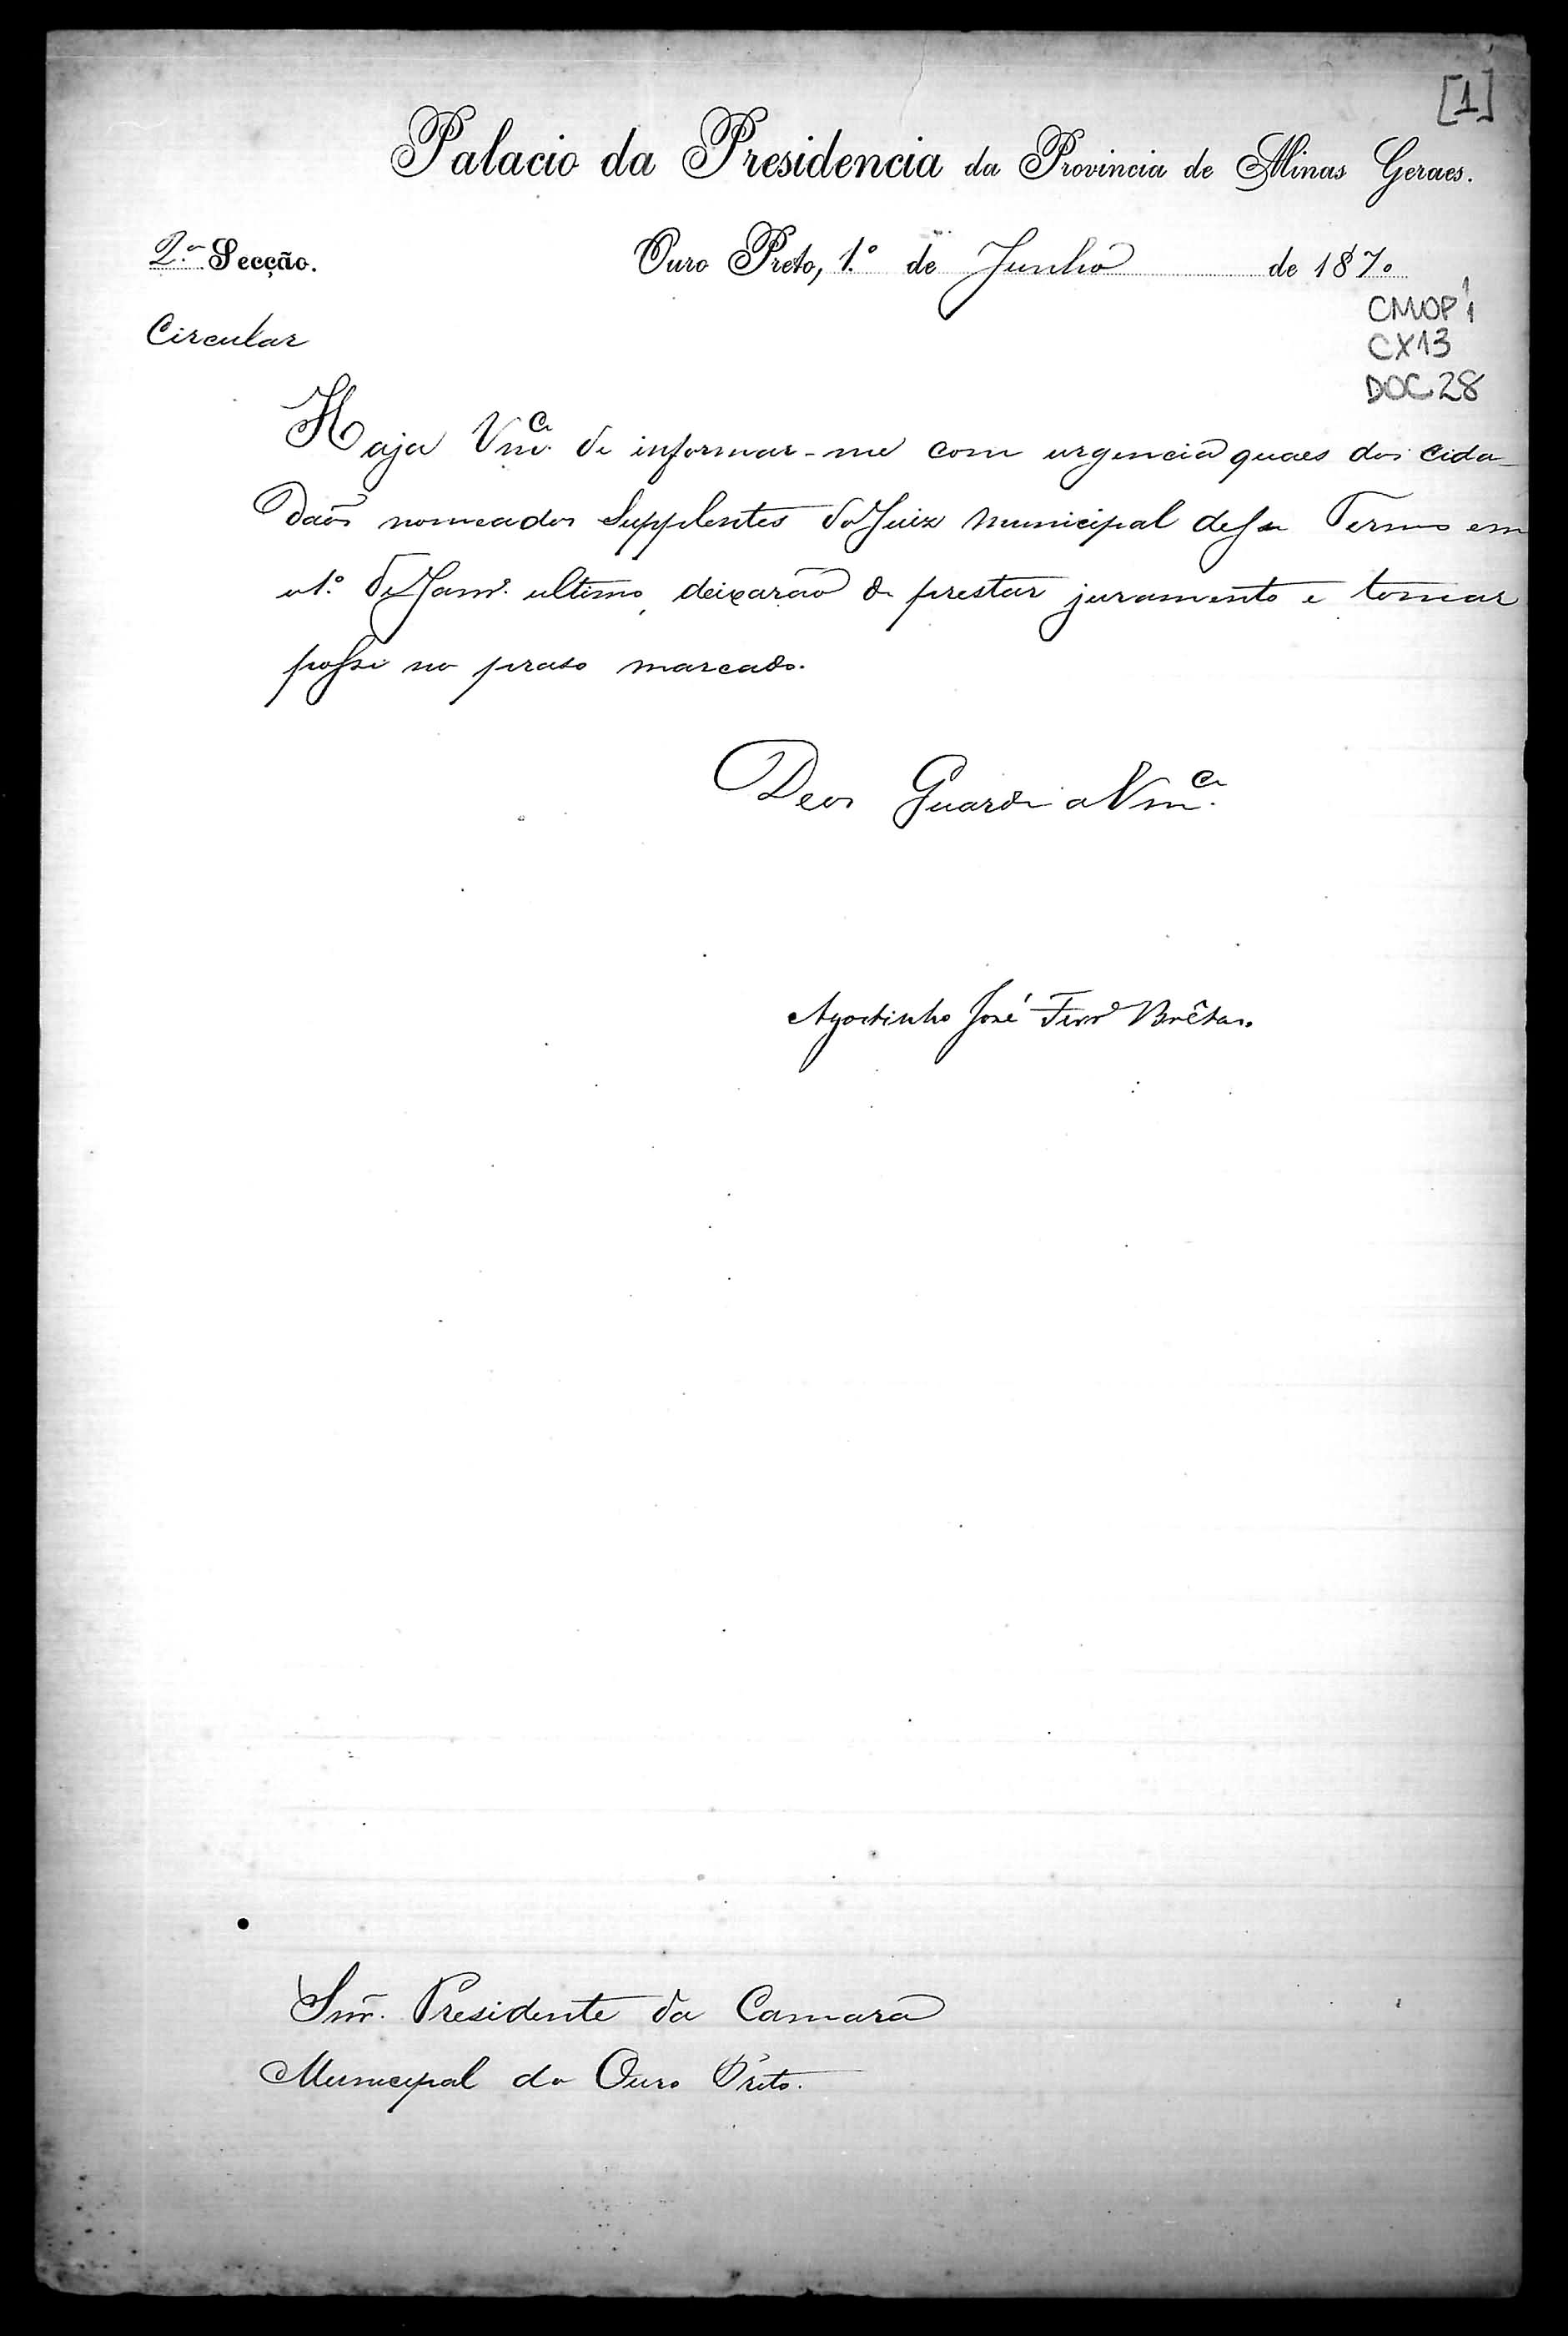 [1]
Palacio da Presidencia da Provincia de Minas Geraes.
2.ª Secção. Ouro Preto, 1.º de Junho de 1870
CMOP 1
Circular
CX13
DOC 28
Haja Vm.ce de informar-me com urgencia quaes dos cida-
daõs nomeados Supplentes do Juiz Municipal desse Termo em
o 1.º de Janr.º ultimo, deixaraõ de prestar juramento e tomar
posse no praso marcado.
Deos Guarde a Vm.ce
Agostinho José Ferr.ª Brêtas.
Snr. Presidente da Camara
Municipal do Ouro Preto.